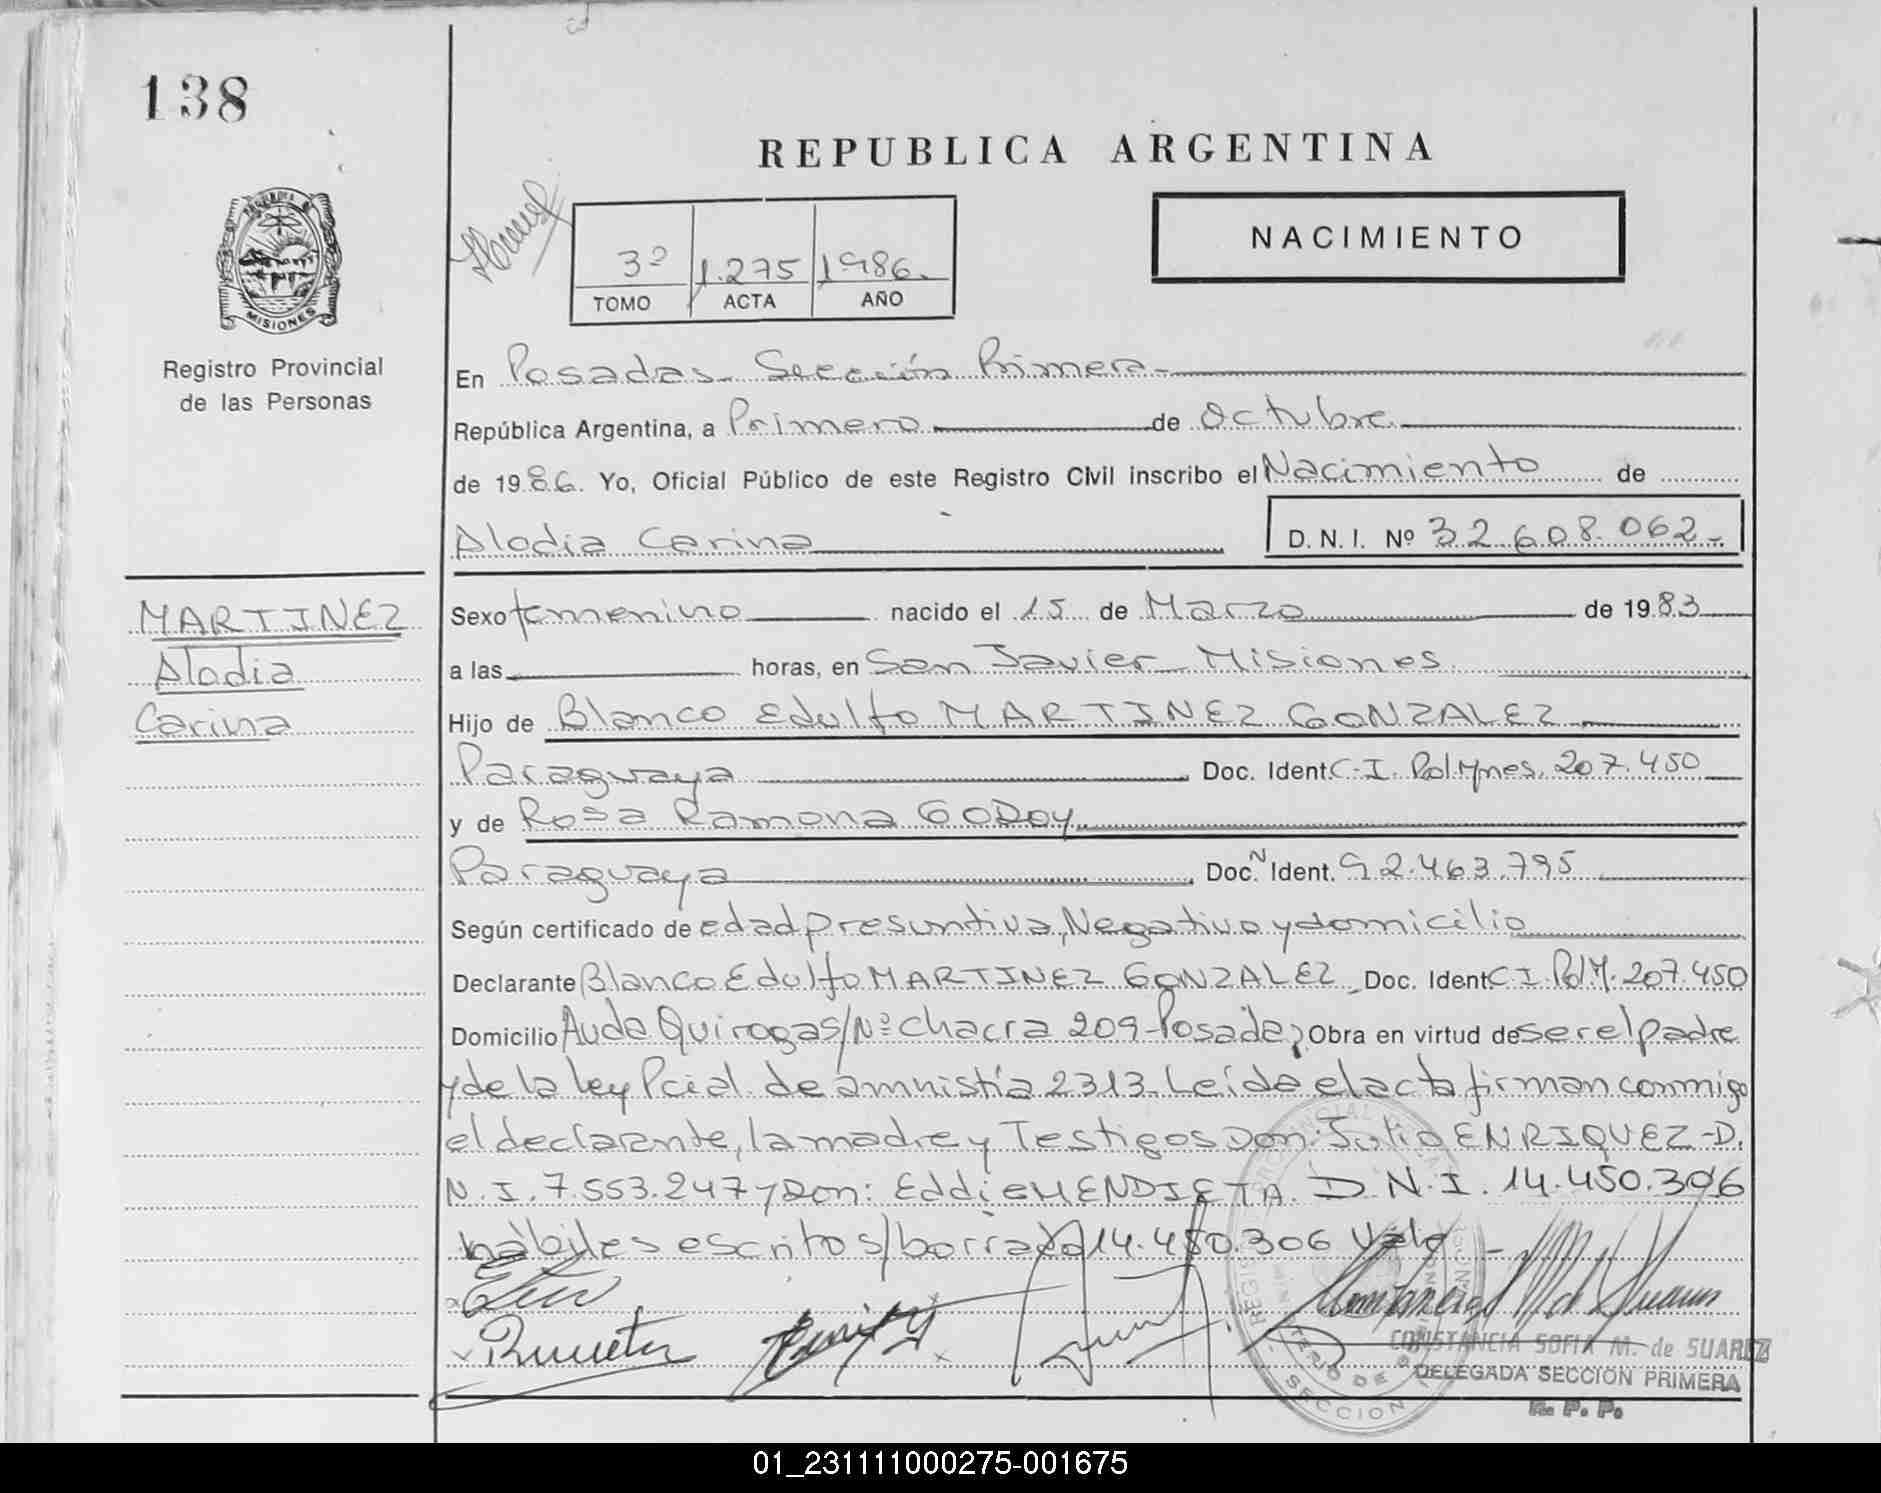 138
REPUBLICA ARGENTINA
NACIMIENTO
3º 1.275 1986.
TOMO ACTA AÑO
MISIONES
Registro Provincial
de las Personas
En Posadas- Sección Primera-
República Argentina, a Primero de Octubre.
de 1986. Yo, Oficial Público de este Registro Civil inscribo el Nacimiento de
Alodia Carina
D. N. I. Nº 32.608.062-
MARTINEZ
Alodia
Carina
Sexo femenino nacido el 15 de Marzo de 1983
a las horas, en San Javier Misiones
Hijo de Blanco Edulfo MARTINEZ GONZALEZ
Paraguaya Doc. Ident. C.I. Pol. Mnes. 207.450
y de Rosa Ramona GODOY
Paraguaya Doc. N Ident. 92.463.795
Según certificado de edad presuntiva, Negativo y domicilio
Declarante Blanco Edulfo MARTINEZ GONZALEZ Doc. Ident C.I. Pol. M. 207.450
Domicilio Avda Quiroga s/Nº Chacra 209-Posadas Obra en virtud de ser el padre
y de la ley Pcial de amnistía 2313- Leída el acta firman conmigo
el declarante, la madre y Testigos Don: Julio ENRIQUEZ-D.
N.I. 7.553.247 y Don: Eddie MENDIETA. D.N.I. 14.450.306
hábiles escrito s/borrado 14.450.306 Vale -
CONSTANCIA SOFIA M. de SUAREZ
DELEGADA SECCION PRIMERA
R. P. P.
01_231111000275-001675